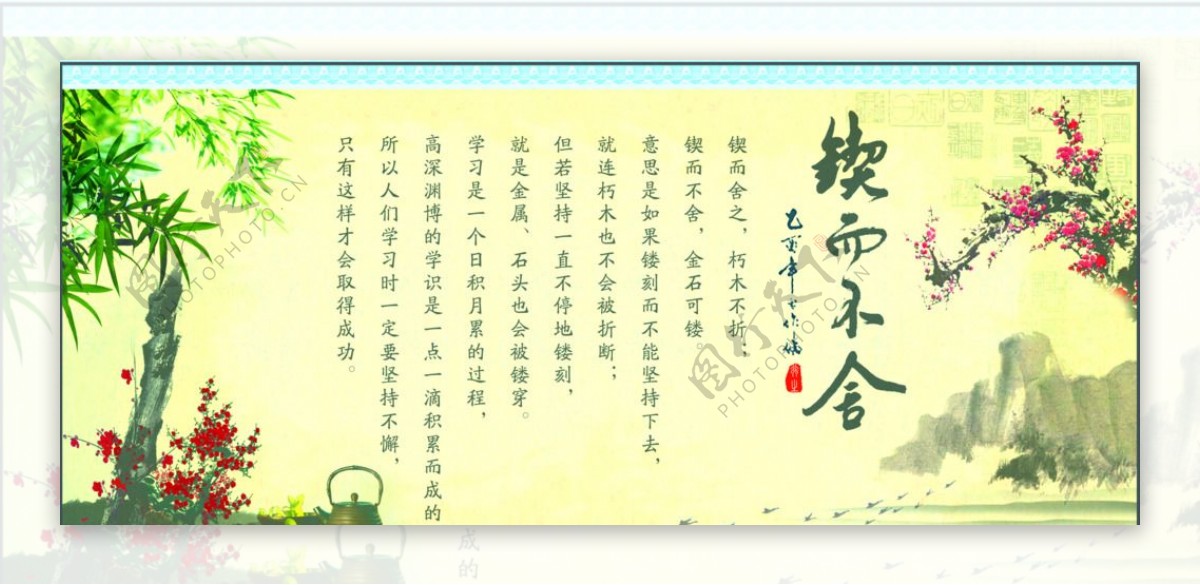 锲而不舍
锲而舍之，朽木不折；
锲而不舍，金石可镂。
意思是如果镂刻而不能坚持下去，
就连朽木也不会被折断；
但若坚持一直不停地镂刻，
就是金属、石头也会被镂穿。
学习是一个日积月累的过程，
高深渊博的学识是一点一滴积累而成的
所以人们学习时一定要坚持不懈，
只有这样才会取得成功。
图行天下
PHOTOPHOTO.CN
成的